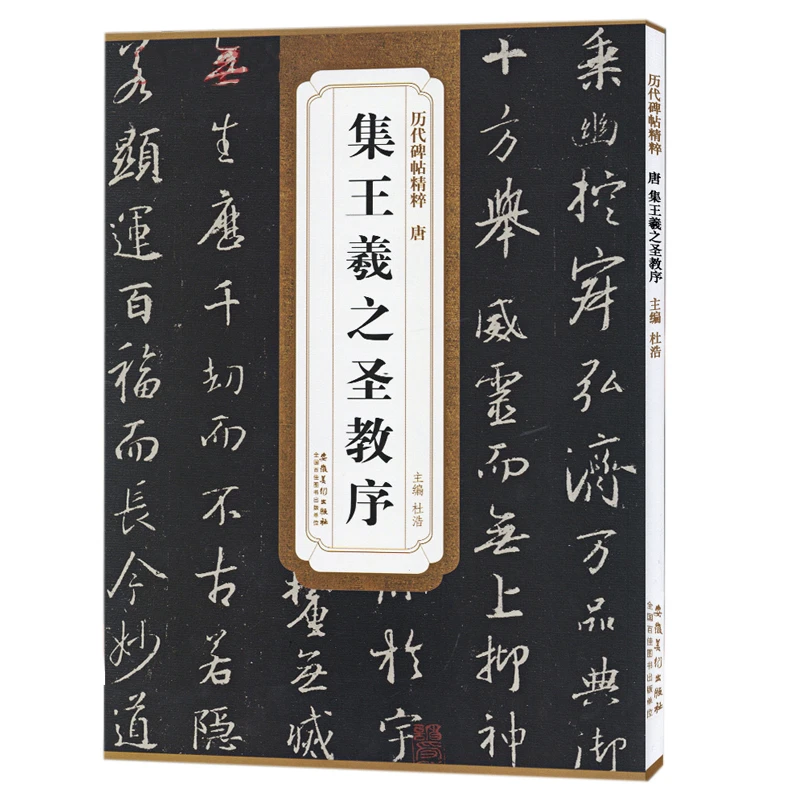 乘幽控寂弘济万品典御
十方舉威靈而无上抑神
於宇
擁无滅
无生歷千劫而不古若隱
若顯運百福而長今妙道
历代碑帖精粹 唐
集王羲之圣教序
主编 杜浩
安徽美术出版社
全国百佳图书出版单位
历代碑帖精粹 唐 集王羲之圣教序 主编 杜浩
安徽美术出版社
全国百佳图书出版单位